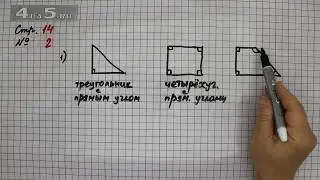 Стр. 14
№ 2
1)
треугольник
с
прямым углом
четырёхуг.
с
прям. углами